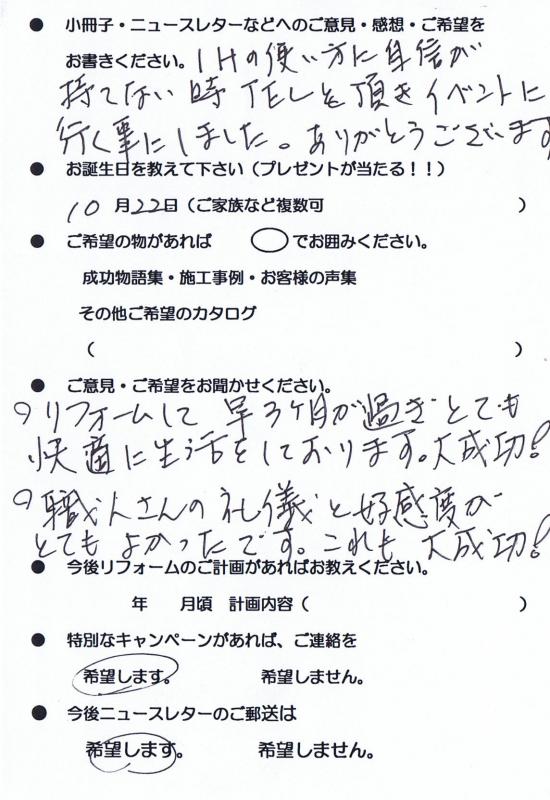 ● 小冊子・ニュースレターなどへのご意見・感想・ご希望を
お書きください。IHの使い方に自信が
持てない時TELを頂きイベントに
行く事にしました。ありがとうございます
● お誕生日を教えて下さい（プレゼントが当たる！！）
10 月22日（ご家族など複数可 ）
● ご希望の物があれば ◯でお囲みください。
成功物語集・施工事例・お客様の声集
その他ご希望のカタログ
（ ）
● ご意見・ご希望をお聞かせください。
○リフォームして 早3ケ月が過ぎとても
快適に生活をしております。大成功！
○職人さんの礼儀と好感度が
とてもよかったです。これも大成功！
● 今後リフォームのご計画があればお教えください。
年 月頃 計画内容（ ）
● 特別なキャンペーンがあれば、ご連絡を
希望します。 希望しません。
● 今後ニュースレターのご郵送は
希望します。 希望しません。